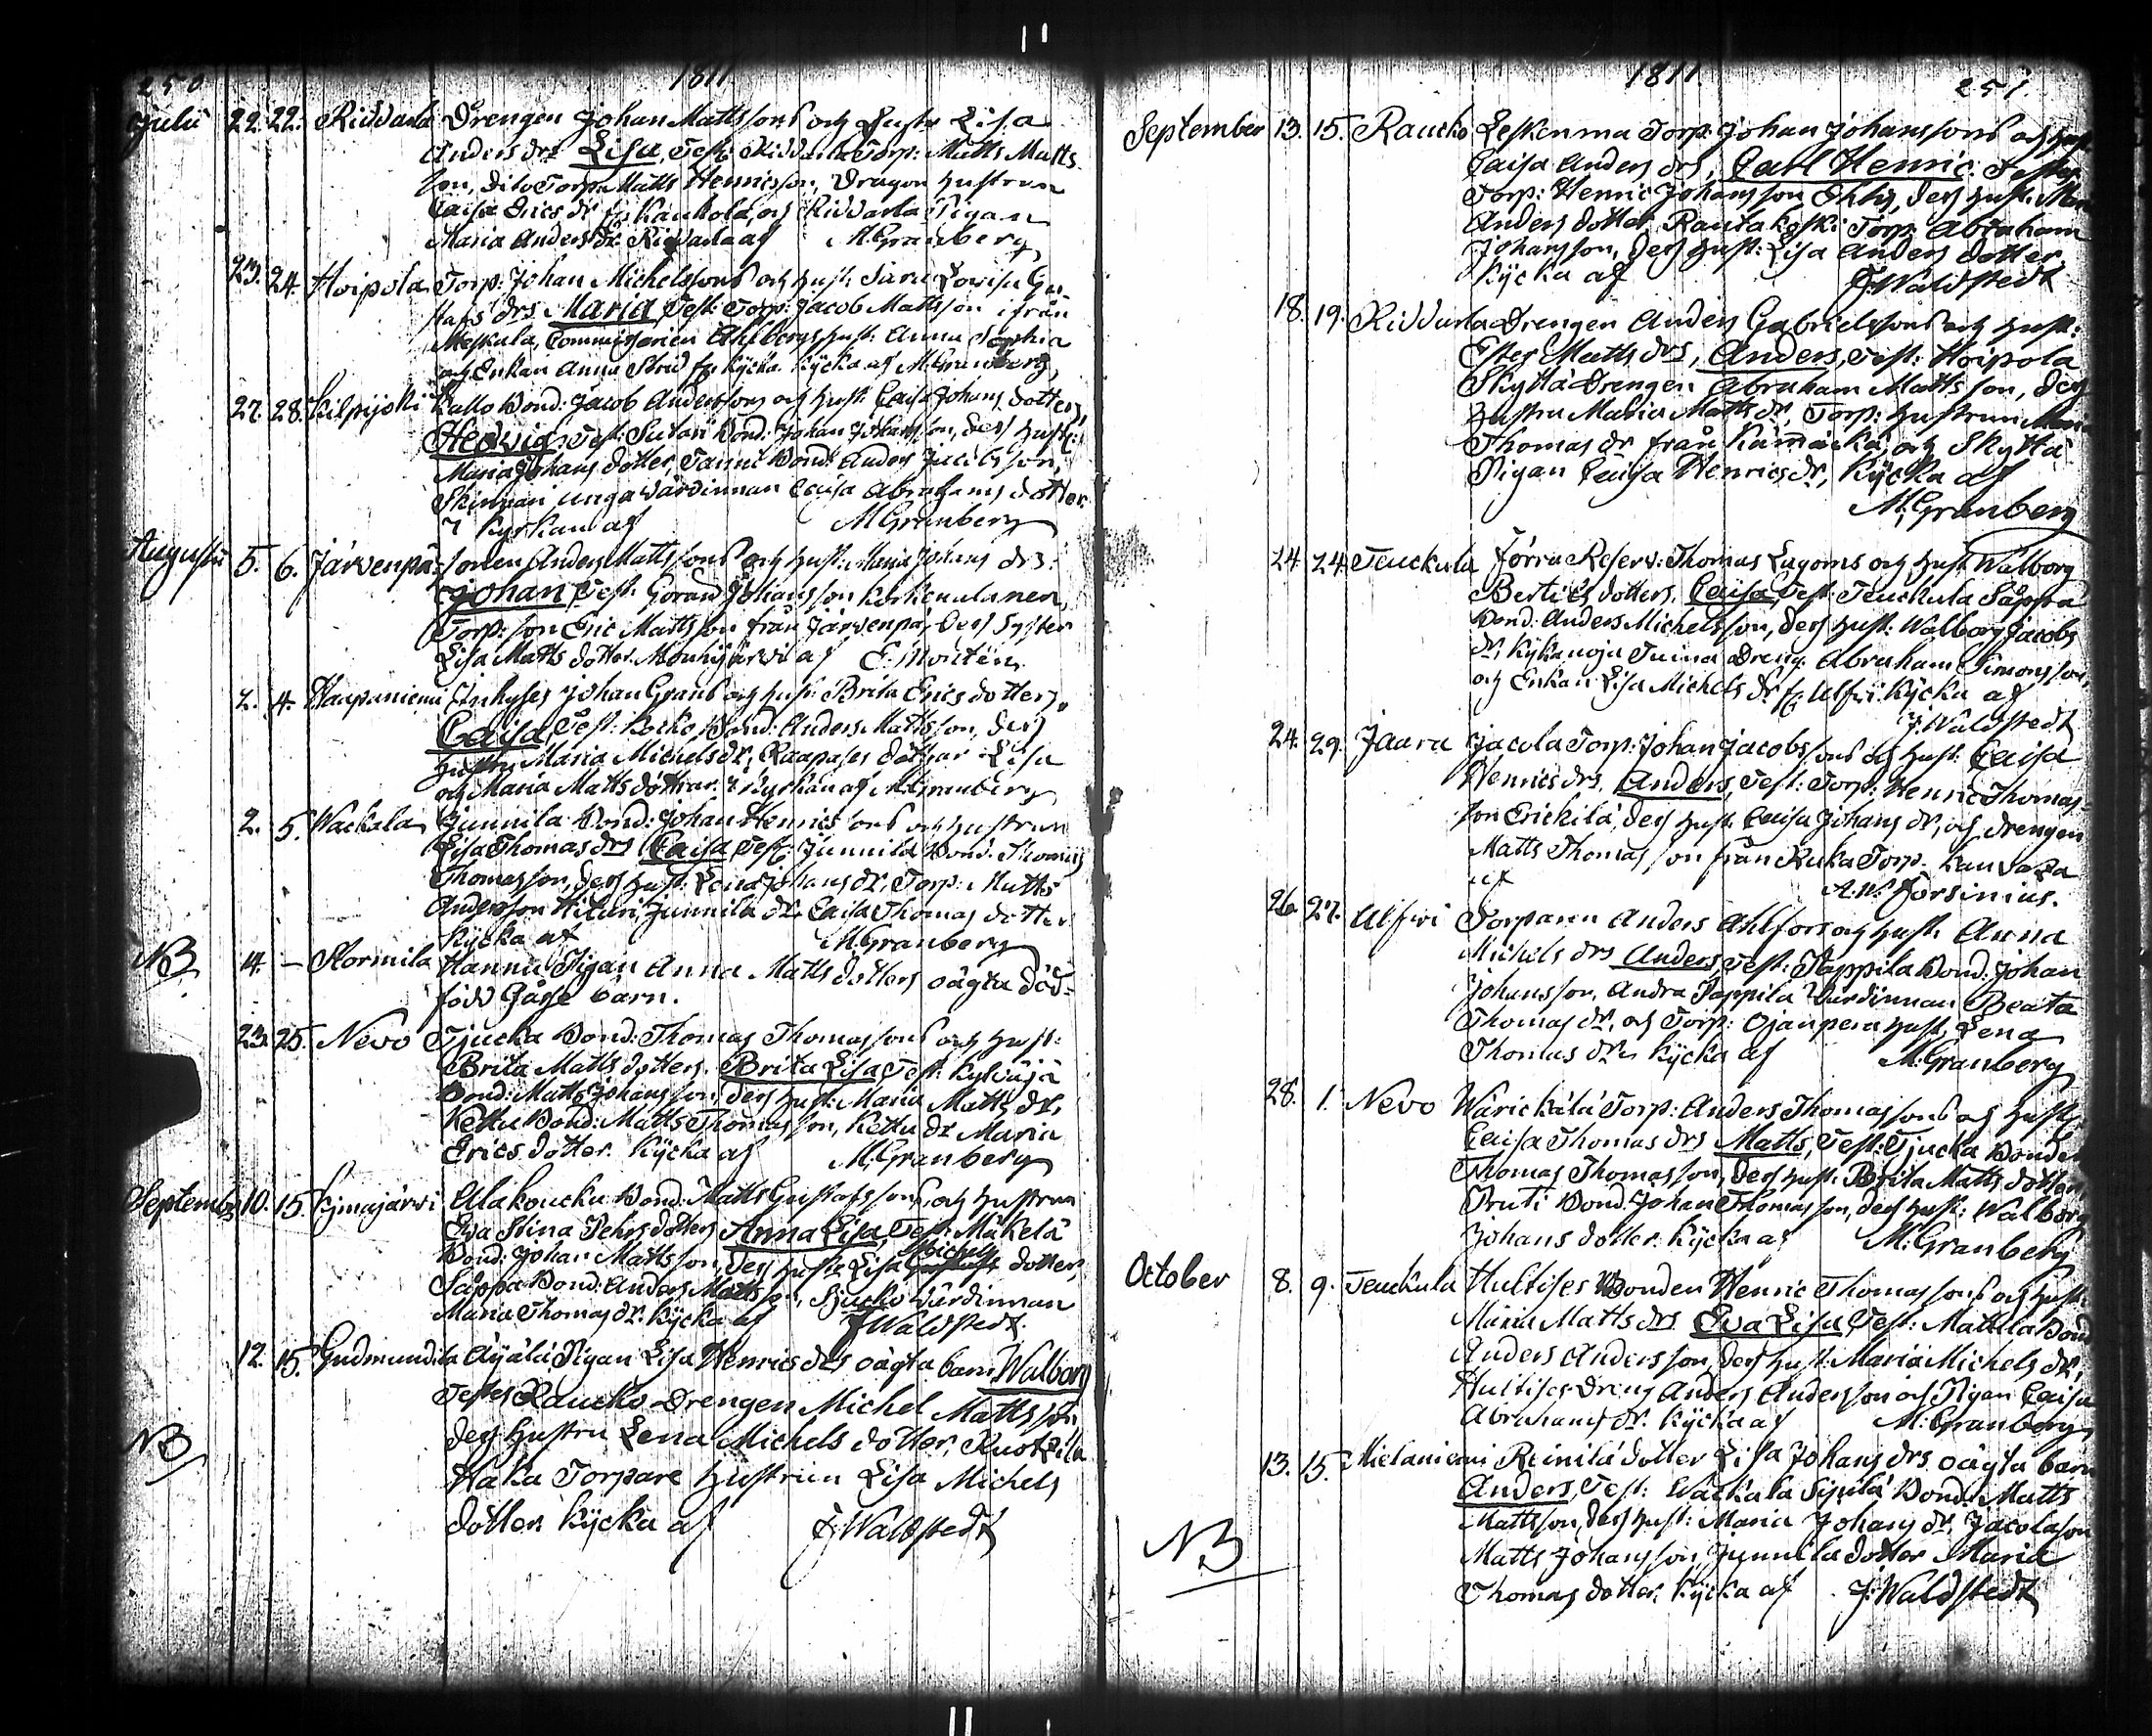 250 1811
Julii 22. 22. Riddarla Drengen Johan Mattssons och Hustr Lisa
Anders drs Lisa, Test: Riddarla Torp: Matts Matts
son, dito Torp: Matts Henricsson, Dragon Hustrun
Caisa Erics dr fr Kaukola, och Riddarla Pigan
Maria Anders dr Riddarla af M. Granberg
23. 24. Hoipola Torp: Johan Michelssons och Hust: Sara Lovisa Gu
stafs drs Maria Test: Torp: Jacob Mattsson ifrån
Meskala, Commissarien Ahlbergs Hust: Anna Sophia
och Enkan Anna Strid fr Kÿcka Kÿcka af M. Granberg
27. 28. Kilpijoki Kallo Bond: Jacob Anderssons och Hust: Caisa Johans dotters,
Hedvig, Test: Sutari Bond: Johan Johansson, des Hustr:
Maria Johans dotter, Tanni Bond: Anders Jacobsson,
Skinnari unga Värdinnan Caisa Abrahams dotter.
i Kyrkan af M. Granberg
Augusti 5. 6. Järvenpä sonen Anders Mattssons och Hust: Maria Johans drs
Johan, Test: Göran Johansson Korkenulanen,
Torp: son Eric Mattsson från Järvenpä, des Syster
Lisa Matts dotter. Mouhijärvi af E: Montén.
2. 4. Haapaniemi Inhyses Johan Grans och Hust: Brita Erics dotters,
Caisa Test: Kocko Bond: Anders Mattsson, des
Hustru Maria Michels dr, Raapases döttrar Lisa
och Maria Matts döttrar. i Kyrkan af M. Granberg
2. 5. Wackala Junnila Bond: Johan Henricssons och Hustrun
Lisa Thomas drs Caisa Test: Junnila Bond: Thomas
Thomasson, des Hust: Lena Johans dr, Torp: Matts
Andersson Hituri, Junnila dr Caisa Thomas dotter
Kÿcka af M. Granberg
NB 14. – Stormila Hannu Pigan Anna Matts dotters oägta död-
född Gåsse barn.
23. 25. Nevo Tjucka Bond: Thomas Thomassons och Hust:
Brita Matts dotters. Brita Lisa Test: Kylväjä
Bond: Matts Johansson, des Hust: Maria Matts dr,
Kettu Bond: Matts Thomasson, Kettu dr Maria
Erics dotter. Kÿcka af M. Granberg
September 10. 15. Kymajärvi Alakoucku Bond: Matts Gustafssons och Hustrun
Eva Stina Pehrs dotters Anna Lisa, Test: Mäkelä
Bond: Johan Mattsson, des Hustr Lisa Michels dotter,
Säppä Bond: Anders Mattsson, Hjucko Värdinnan
Maria Thomas dr. Kÿcka af J Waldstedt.
12. 15. Gudmundila Äÿälä Pigan Lisa Henrics drs oägta barn Walborg
Testes Raucko Drengen Michel Mattsson
NB des Hustru Lena Michels dotter, Ruotzila
Haka Torpare Hustrun Lisa Michels
dotter. Kÿcka af J: Waldstedt
1811. 251
September 13. 15. Raucko Leskenma Torp: Johan Johanssons och Hust
Caisa Anders drs, Carl Henric. Testes
Torp: Henric Johansson Ehly, des Hust:
Anders dotter, Rautakoski Torp: Abraham
Johansson, des Hust: Lisa Anders dotter.
Kÿcka af J: Waldstedt
18. 19. Riddarla Drengen Anders Gabrielssons och Hust:
Ester Matts drs, Anders, Test: Hoipola
Skyttä Drengen Abraham Mattsson, des
Hustru Maria Matts dr, Torp: Hustrun Maria
Thomas dr från Kämäckä, och Skyttä
Pigan Caisa Henrics dr, Kÿcka af
M: Granberg
24 24 Teuckula Jörra Reserv: Thomas Lagoms och Hust Walborg
Bertils dotters. Caisa, Test: Teuckula Säppä
Bond: Anders Michelsson, des Hust: Walborg Jacobs
dr, Kykänoja Tuima Dreng Abraham Simonsson,
och Enkan Lisa Michels dr fr Ulfvi Kÿcka af
J. Waldstedt
24. 29. Jaara Jacola Torp: Johan Jacobssons och Hust: Caisa
Henrics drs, Anders, Test: Torp: Henric Thomas-
son Erickilä, des Hust: Caisa Johans dr, och drengen
Matts Thomasson från Ruka Torp. Kauvaza
af A. W. Forsinius.
26. 27. Ulfvi Torparen Anders Ahlfors och Hust: Anna
Michels drs Anders, Test: Pappila Bond: Johan
Johansson, Andra Pappila Värdinnan Beata
Thomas dr, och Torp: Ojanpera Hust: Lena
Thomas dr. Kÿcka af M: Granberg
28. 1. Nevo Warickälä Torp: Anders Thomassons och Hust:
Caisa Thomas drs Matts, Test: Tjucka Bonden
Thomas Thomasson, des Hust: Brita Matts dotter,
Pruti Bond: Johan Thomasson, des Hust: Walborg
Johans dotter. Kÿcka af M: Granberg
October 8. 9. Teuckula Hultises Bonden Henric Thomassons och Hust:
Maria Matts drs Eva Lisa, Test: Mattila Bond
Anders Andersson, des Hust: Maria Michels dr,
Hultises Dreng Anders Andersson och Pigan Caisa
Abrahams dr. Kÿcka af M: Granberg
13. 15. Mielaniemi Reinilä dotter Lisa Johans drs oägta barn
Anders, Test: Wackala Sipilä Bond: Matts
NB Mattsson, des Hust: Maria Johans dr, Jacola son
Matts Johansson, Junnila dotter Maria
Thomas dotter. Kÿcka af J: Waldstedt